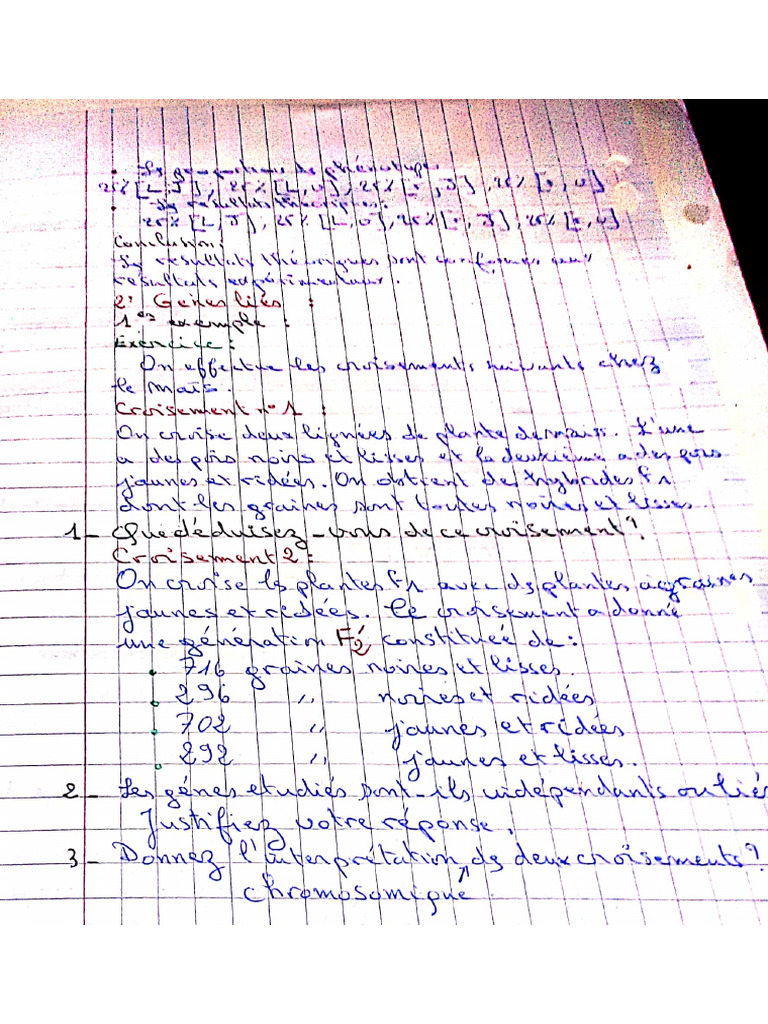 Les proportions des phénotypes
25% [L, J], 25% [L, v], 25% [r, J], 25% [r, v]
Les résultats théoriques :
25% [L, J], 25% [L, v], 25% [r, J], 25% [r, v]
Conclusion :
Les résultats théoriques sont conformes aux
résultats expérimentaux.
2° Gènes liés :
1er exemple :
Exercice :
On effectue les croisements suivants chez
le maïs.
Croisement n° 1 :
On croise deux lignées de plante de maïs. L'une
a des pois noirs et lisses et la deuxième a des pois
jaunes et ridées. On obtient des hybrides F1
dont les graines sont toutes noires et lisses.
1 - Que déduisez-vous de ce croisement ?
Croisement 2 :
On croise les plantes F1 avec ds plantes à graines
jaunes et ridées. Ce croisement a donné
une génération F'2 constituée de :
716 graines noires et lisses.
296 " noires et ridées
702 " jaunes et ridées
292 " jaunes et lisses.
2 - Les gènes etudiés sont-ils indépendants ou liés
Justifiez votre réponse.
3 - Donnez l'interprétation ds deux croisements ?
chromosomique